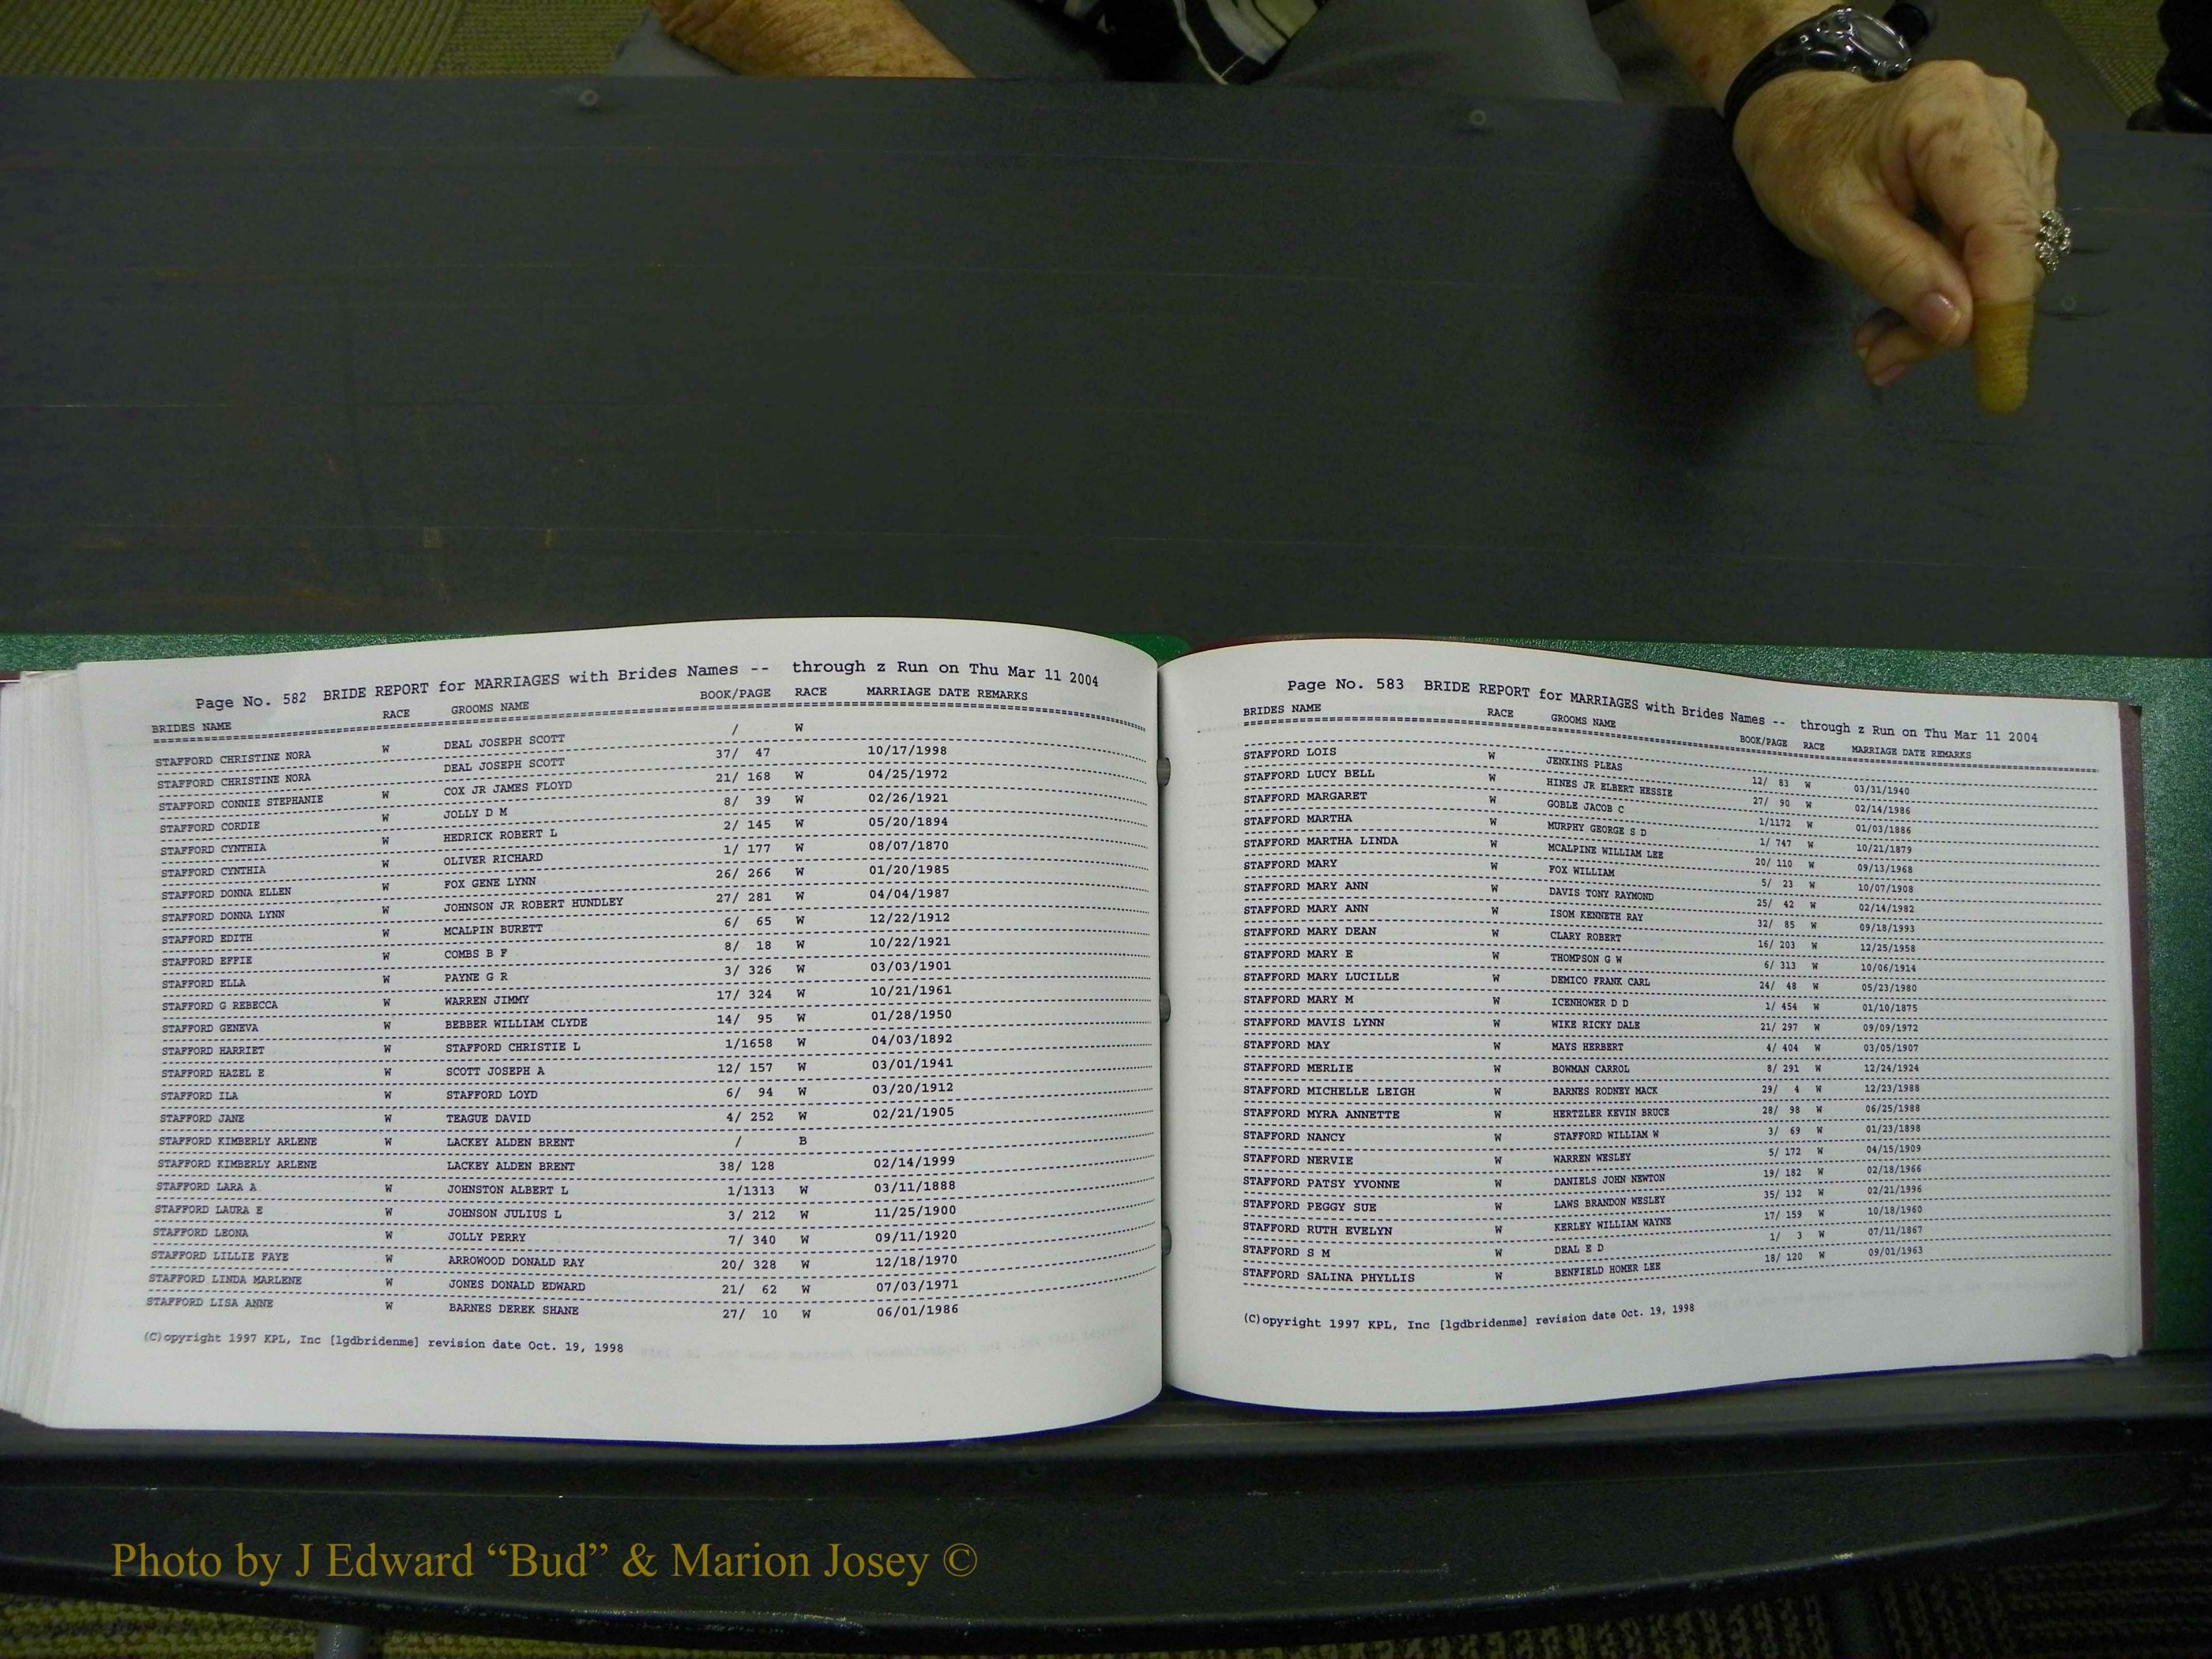 Page No. 582 BRIDE REPORT for MARRIAGES with Brides Names -- through z Run on Thu Mar 11 2004
BRIDES NAME RACE GROOMS NAME BOOK/PAGE RACE MARRIAGE DATE REMARKS
STAFFORD CHRISTINE NORA W DEAL JOSEPH SCOTT / W
STAFFORD CHRISTINE NORA DEAL JOSEPH SCOTT 37/ 47 10/17/1998
STAFFORD CONNIE STEPHANIE W COX JR JAMES FLOYD 21/ 168 W 04/25/1972
STAFFORD CORDIE W JOLLY D M 8/ 39 W 02/26/1921
STAFFORD CYNTHIA W HEDRICK ROBERT L 2/ 145 W 05/20/1894
STAFFORD CYNTHIA W OLIVER RICHARD 1/ 177 W 08/07/1870
STAFFORD DONNA ELLEN W FOX GENE LYNN 26/ 266 W 01/20/1985
STAFFORD DONNA LYNN W JOHNSON JR ROBERT HUNDLEY 27/ 281 W 04/04/1987
STAFFORD EDITH W MCALPIN BURETT 6/ 65 W 12/22/1912
STAFFORD EFFIE W COMBS B F 8/ 18 W 10/22/1921
STAFFORD ELLA W PAYNE G R 3/ 326 W 03/03/1901
STAFFORD G REBECCA W WARREN JIMMY 17/ 324 W 10/21/1961
STAFFORD GENEVA W BEBBER WILLIAM CLYDE 14/ 95 W 01/28/1950
STAFFORD HARRIET W STAFFORD CHRISTIE L 1/1658 W 04/03/1892
STAFFORD HAZEL E W SCOTT JOSEPH A 12/ 157 W 03/01/1941
STAFFORD ILA W STAFFORD LOYD 6/ 94 W 03/20/1912
STAFFORD JANE W TEAGUE DAVID 4/ 252 W 02/21/1905
STAFFORD KIMBERLY ARLENE W LACKEY ALDEN BRENT / B
STAFFORD KIMBERLY ARLENE LACKEY ALDEN BRENT 38/ 128 02/14/1999
STAFFORD LARA A W JOHNSTON ALBERT L 1/1313 W 03/11/1888
STAFFORD LAURA E W JOHNSON JULIUS L 3/ 212 W 11/25/1900
STAFFORD LEONA W JOLLY PERRY 7/ 340 W 09/11/1920
STAFFORD LILLIE FAYE W ARROWOOD DONALD RAY 20/ 328 W 12/18/1970
STAFFORD LINDA MARLENE W JONES DONALD EDWARD 21/ 62 W 07/03/1971
STAFFORD LISA ANNE W BARNES DEREK SHANE 27/ 10 W 06/01/1986
(C)opyright 1997 KPL, Inc [lgdbridenme] revision date Oct. 19, 1998
Page No. 583 BRIDE REPORT for MARRIAGES with Brides Names -- through z Run on Thu Mar 11 2004
BRIDES NAME RACE GROOMS NAME BOOK/PAGE RACE MARRIAGE DATE REMARKS
STAFFORD LOIS W JENKINS PLEAS 12/ 83 W 03/31/1940
STAFFORD LUCY BELL W HINES JR ELBERT HESSIE 27/ 90 W 02/14/1986
STAFFORD MARGARET W GOBLE JACOB C 1/1172 W 01/03/1886
STAFFORD MARTHA W MURPHY GEORGE S D 1/ 747 W 10/21/1879
STAFFORD MARTHA LINDA W MCALPINE WILLIAM LEE 20/ 110 W 09/13/1968
STAFFORD MARY W FOX WILLIAM 5/ 23 W 10/07/1908
STAFFORD MARY ANN W DAVIS TONY RAYMOND 25/ 42 W 02/14/1982
STAFFORD MARY ANN W ISOM KENNETH RAY 32/ 85 W 09/18/1993
STAFFORD MARY DEAN W CLARY ROBERT 16/ 203 W 12/25/1958
STAFFORD MARY E W THOMPSON G W 6/ 313 W 10/06/1914
STAFFORD MARY LUCILLE W DEMICO FRANK CARL 24/ 48 W 05/23/1980
STAFFORD MARY M W ICENHOWER D D 1/ 454 W 01/10/1875
STAFFORD MAVIS LYNN W WIKE RICKY DALE 21/ 297 W 09/09/1972
STAFFORD MAY W MAYS HERBERT 4/ 404 W 03/05/1907
STAFFORD MERLIE W BOWMAN CARROL 8/ 291 W 12/24/1924
STAFFORD MICHELLE LEIGH W BARNES RODNEY MACK 29/ 4 W 12/23/1988
STAFFORD MYRA ANNETTE W HERTZLER KEVIN BRUCE 28/ 98 W 06/25/1988
STAFFORD NANCY W STAFFORD WILLIAM W 3/ 69 W 01/23/1898
STAFFORD NERVIE W WARREN WESLEY 5/ 172 W 04/15/1909
STAFFORD PATSY YVONNE W DANIELS JOHN NEWTON 19/ 182 W 02/18/1966
STAFFORD PEGGY SUE W LAWS BRANDON WESLEY 35/ 132 W 02/21/1996
STAFFORD RUTH EVELYN W KERLEY WILLIAM WAYNE 17/ 159 W 10/18/1960
STAFFORD S M W DEAL E D 1/ 3 W 07/11/1867
STAFFORD SALINA PHYLLIS W BENFIELD HOMER LEE 18/ 120 W 09/01/1963
(C)opyright 1997 KPL, Inc [lgdbridenme] revision date Oct. 19, 1998
Photo by J Edward “Bud” & Marion Josey ©